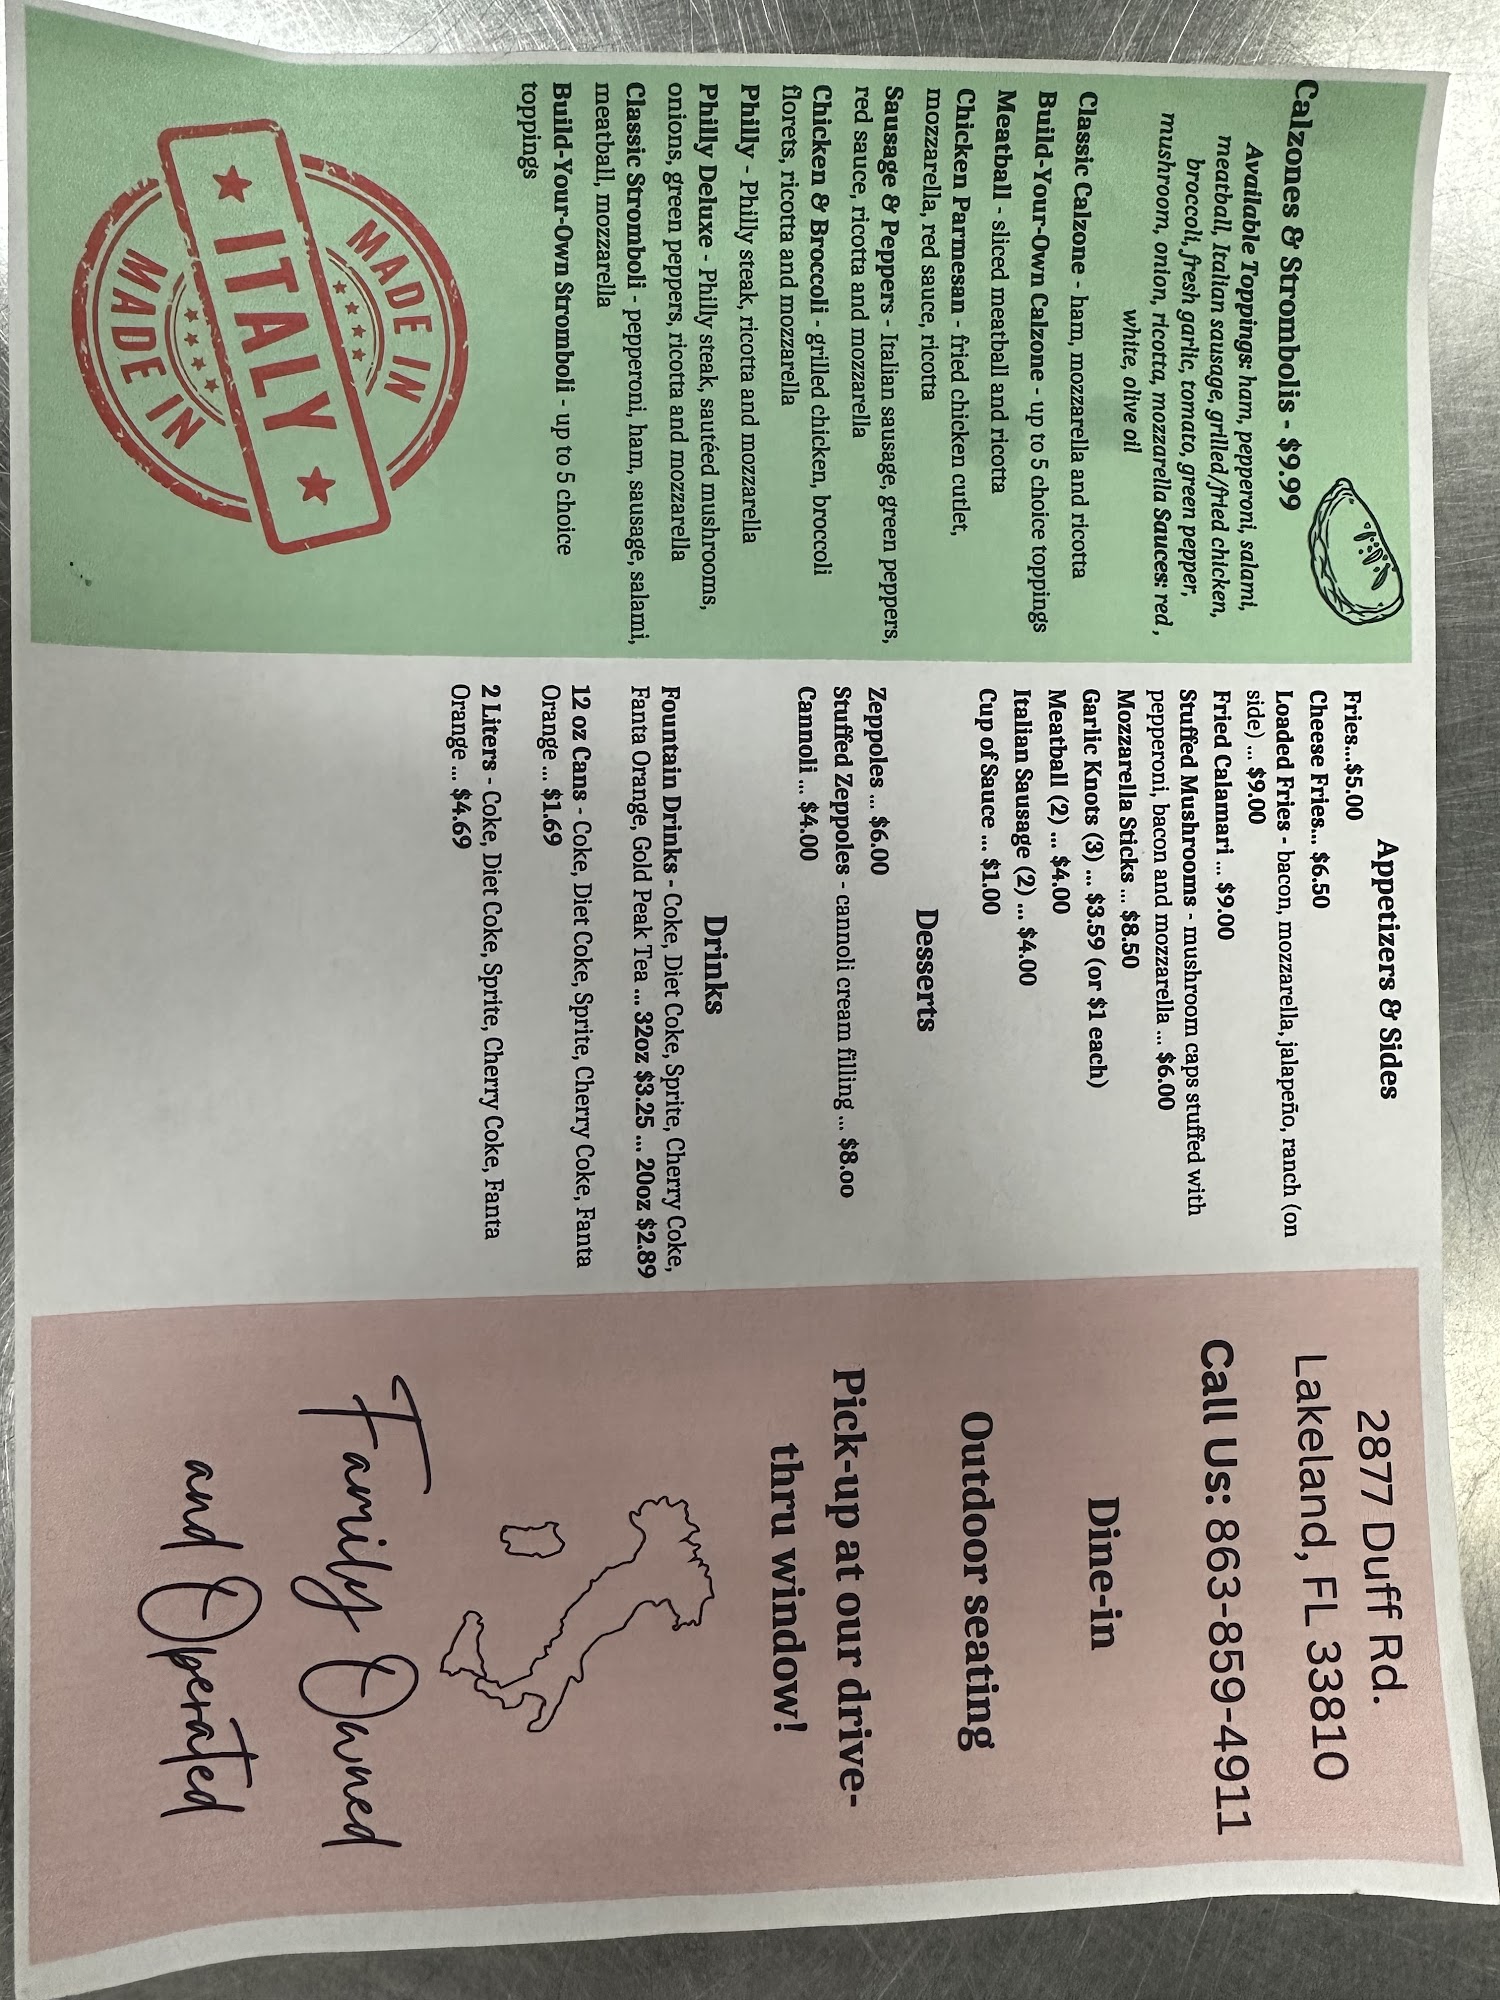 Calzones & Strombolis - $9.99
Available Toppings: ham, pepperoni, salami,
meatball, Italian sausage, grilled/fried chicken,
broccoli, fresh garlic, tomato, green pepper,
mushroom, onion, ricotta, mozzarella Sauces: red ,
white, olive oil
Classic Calzone - ham, mozzarella and ricotta
Build-Your-Own Calzone - up to 5 choice toppings
Meatball - sliced meatball and ricotta
Chicken Parmesan - fried chicken cutlet,
mozzarella, red sauce, ricotta
Sausage & Peppers - Italian sausage, green peppers,
red sauce, ricotta and mozzarella
Chicken & Broccoli - grilled chicken, broccoli
florets, ricotta and mozzarella
Philly - Philly steak, ricotta and mozzarella
Philly Deluxe - Philly steak, sautéed mushrooms,
onions, green peppers, ricotta and mozzarella
Classic Stromboli - pepperoni, ham, sausage, salami,
meatball, mozzarella
Build-Your-Own Stromboli - up to 5 choice
toppings
MADE IN
ITALY
MADE IN
Appetizers & Sides
Fries...$5.00
Cheese Fries... $6.50
Loaded Fries - bacon, mozzarella, jalapeño, ranch (on
side) ... $9.00
Fried Calamari ... $9.00
Stuffed Mushrooms - mushroom caps stuffed with
pepperoni, bacon and mozzarella ... $6.00
Mozzarella Sticks ... $8.50
Garlic Knots (3) ... $3.59 (or $1 each)
Meatball (2) ... $4.00
Italian Sausage (2) ... $4.00
Cup of Sauce ... $1.00
Desserts
Zeppoles ... $6.00
Stuffed Zeppoles - cannoli cream filling ... $8.oo
Cannoli ... $4.00
Drinks
Fountain Drinks - Coke, Diet Coke, Sprite, Cherry Coke,
Fanta Orange, Gold Peak Tea ... 32oz $3.25 ... 20oz $2.89
12 oz Cans - Coke, Diet Coke, Sprite, Cherry Coke, Fanta
Orange ... $1.69
2 Liters - Coke, Diet Coke, Sprite, Cherry Coke, Fanta
Orange ... $4.69
2877 Duff Rd.
Lakeland, FL 33810
Call Us: 863-859-4911
Dine-in
Outdoor seating
Pick-up at our drive-
thru window!
Family Owned
and Operated